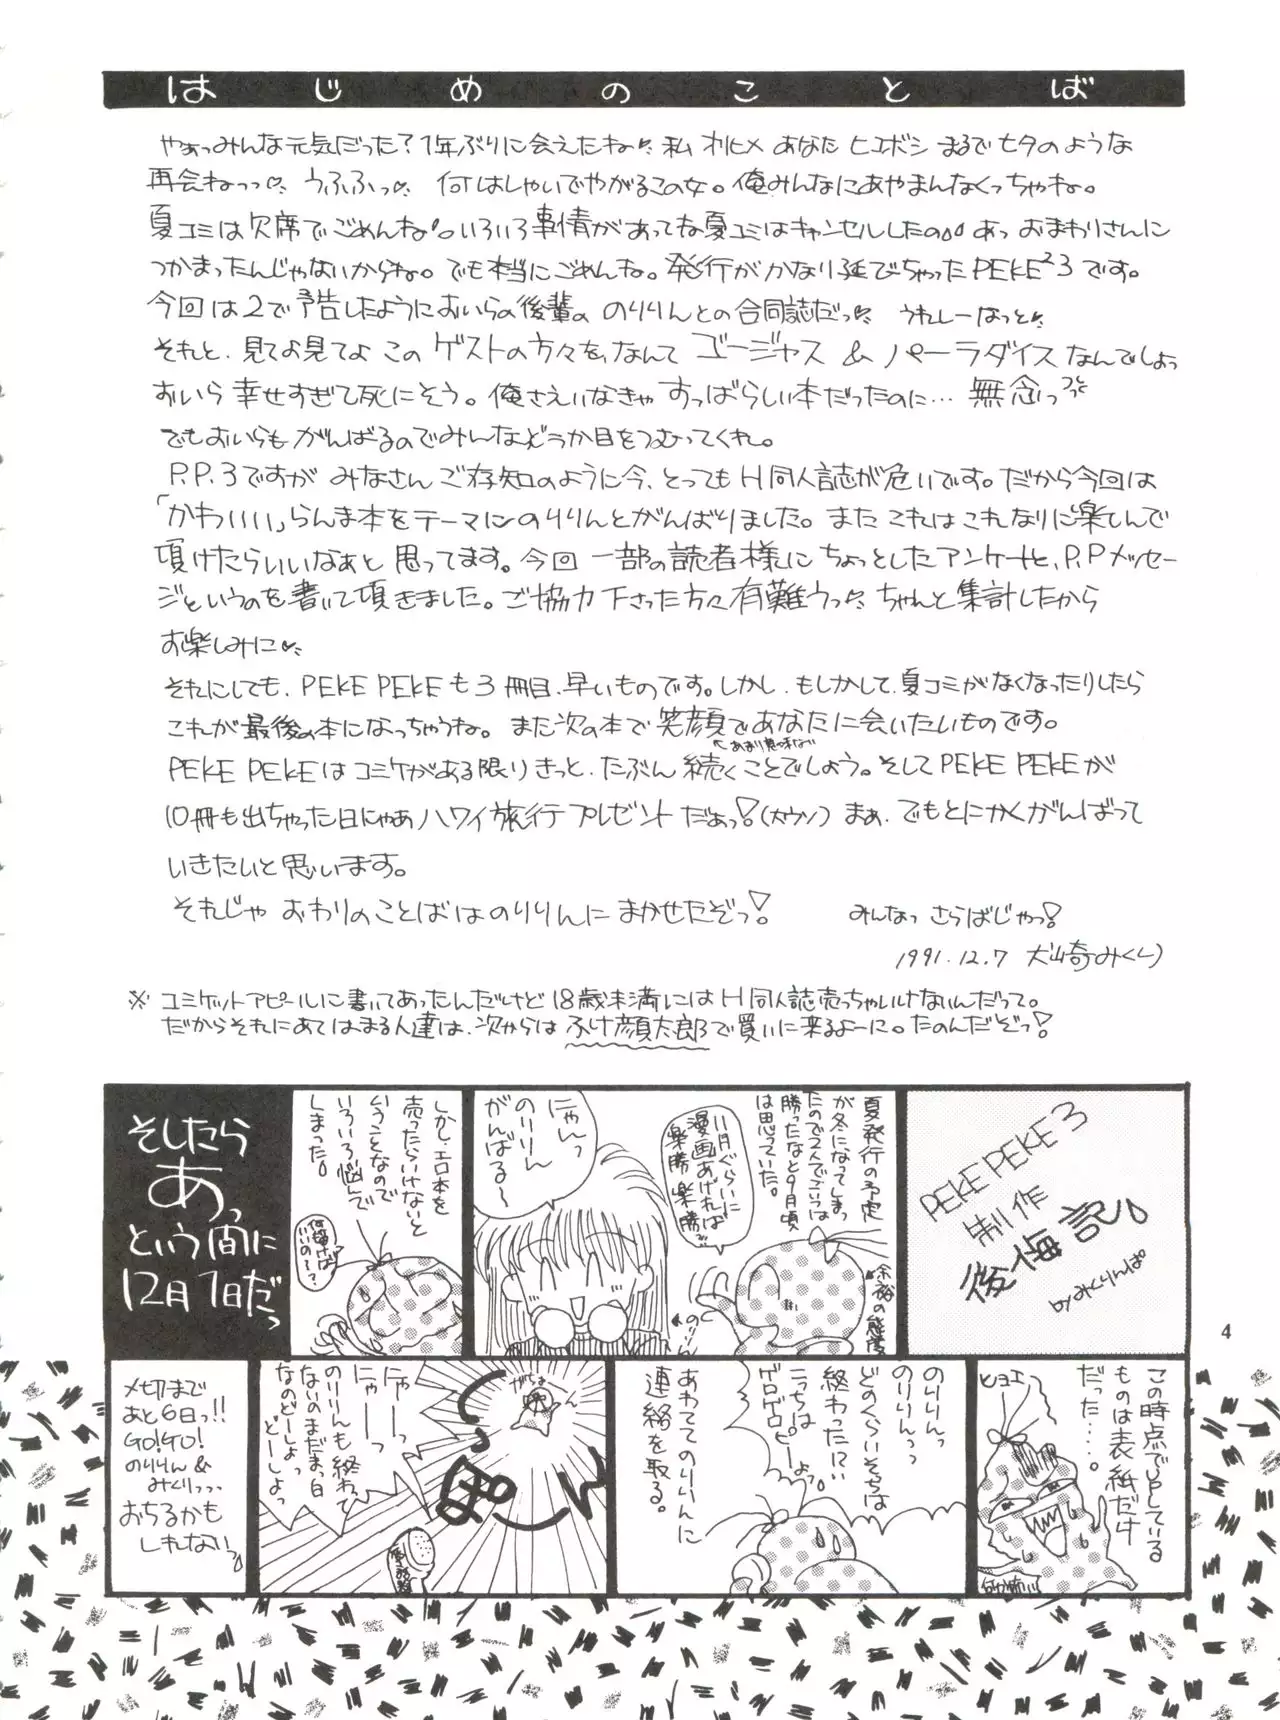 はじめのことば
やぁっみんな元気だった？1年ぶりに会えたね 私 オリヒメ あなた ヒコボシ まるで七夕のような
再会ねっっ うふふっ 何はしゃいでやがるこの女。俺みんなにあやまんなくっちゃね。
夏コミは欠席でごめんね。いろいろ事情があってね夏コミはキャンセルしたの あっ おまわりさんに
つかまったんじゃないからね。でも本当にごめんね。発行がかなり延びちゃったPEKE²3です。
今回は2で予告したようにおいらの後輩の のりりんとの合同誌だっ うれしーなっと
それと、見てよ見てよ この ゲストの方々を、なんて ゴージャス & パーラダイス なんでしょっ
おいら 幸せすぎて死にそう。俺さえいなきゃ すっばらしい本だったのに… 無念っ
でもおいらも がんばるのでみんなどうか目をつむってくれ。
P.P.3ですが みなさん ご存知のように今、とってもH同人誌が危いです。だから今回は
「かわいい」らんま本をテーマにのりりんとがんばりました。また これはこれなりに楽しんで
頂けたらいいなぁと 思ってます。今回 一部の読者様に ちょっとしたアンケートと、P.Pメッセー
ジというのを書いて頂きました。ご協力下さった方々有難うっ ちゃんと集計したから
お楽しみに
それにしても、PEKE PEKEも3冊目、早いものです。しかし、もしかして、夏コミがなくなったりしたら
これが最後の本になっちゃうね。また次の本で笑顔であなたに会いたいものです。
↖あまり意味ない
PEKE PEKEはコミケがある限りきっと、たぶん 続くことでしょう。そしてPEKE PEKEが
10冊も出ちゃった日にゃあハワイ旅行プレゼントだぁっ!(大ウソ) まぁ、でもとにかくがんばって
いきたいと思います。
それじゃ おわりのことばはのりりんに まかせたぞっ! みんなっ さらばじゃっ!
1991.12.7 犬崎みくり
※ コミケットアピールに書いてあったんだけど 18歳未満にはH同人誌売っちゃいけないんだって。
だからそれにあてはまる人達は、次からは ふけ顔太郎で買いに来るよーに。たのんだぞっ!
PEKE PEKE 3
制作
後悔記
by みくりんぱ
夏発行の予定
が冬になってしまっ
たので2人でこいつは
勝ったなと9月頃
は思っていた。
余裕の態度
11月ぐらいに
漫画あげれば
楽勝楽勝
にゃんっ
のりりん
がんばる〜
のりりん
しかし、エロ本を
売ったらいけないと
いうことなので
いろいろ悩んで
しまった。
何描けば
いいの〜?
そしたら
あっ
という間に
12月1日だっ
この時点でUPしている
ものは表紙だけ
だった……。
ヒョエ
のりりんっ
のりりんっ
どのくらいそちらは
終わったにい
こっちは
ゲロゲロピーよっ
あわててのりりんに
連絡を取る。
がちょ
にゃーっ
にゃーっ
のりりんも終わって
ないのまだまっ白
なのどーしよっ
どーしよっ
〆切まで
あと6日っ!!
GO!GO!
のりりん&
みくりっっ
おちるかも
しれないっ
4